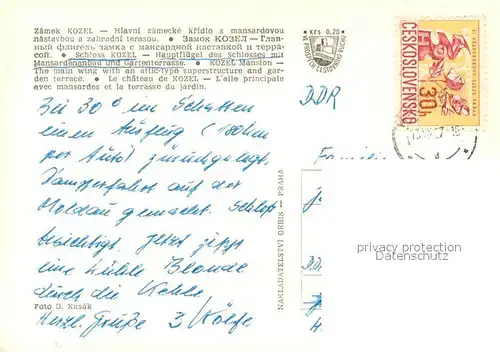 Zámek KOZEL — Hlavní zámecké křídlo s mansardovou
nástavbou a zahradní terasou. • Замок КОЗЕЛ — Глав-
ный флигель замка с мансардной наставкой и терра-
сой. • Schloss KOZEL — Hauptflügel des Schlosses mit
Mansardenanbau und Gartenterrasse. • KOZEL Mansion —
The main wing with an attic-type superstructure and gar-
den terrace. • Le château de KOZEL — L'aile principale
avec mansardes et la terrasse du jardin.
Kčs 0,20
VE PROSPĚCH CESTOVNÍHO RUCHU
ČESKOSLOVENSKO
30h
DDR
Bei 30° im Schatten
einen Ausflug (180km
per Auto) zurückgelegt,
Dampferfahrt auf der
Moldau gemacht. Schloß
besichtigt. Jetzt zischt
eine kühle Blonde
durch die Kehle
Herzl. Grüße
Foto D. Kusák
NAKLADATELSTVÍ ORBIS — PRAHA
privacy protection
Datenschutz